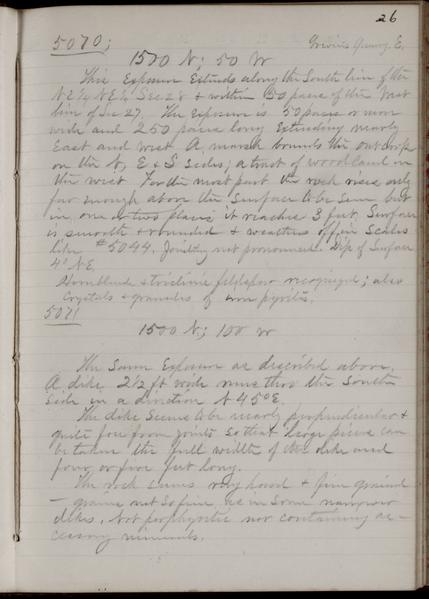 26
5070; Grevis Quarry, E.
1500 N; 50 W
This Exposure Extends along the South line of the
N E 1/4 N E 1/4 Sec 28 & within 50 paces of the West
line of Sec 27. The Exposure is 50 paces or more
wide and 250 paces long Extending nearly
East and West A marsh bounds the outcrop
on the N, E & S sides; a tract of woodland on
the west For the most part the rock rises only
far enough above the surface to be seen but
in one or two places it reaches 3 feet. Surface
is smooth & rounded & weathers off in scales
like #5044. Jointing not pronounced. Dip of Surface
4° N E.
Hornblende & triclinic feldspar recognized; also
Crystals & granules of iron pyrites.
5071
1500 N; 100 W
The Same Exposure as described above.
A dike 2 1/2 ft wide runs thro the South
side in a direction N 45° E.
The dike seems to be nearly perpendicular &
quite free from joints so that large pieces can
be taken the full width of the dike and
four or five feet long.
The rock seems very hard & fine grained
— grains not so fine as in some narrower
dikes, not porphyritic nor containing ac-
cessory minerals.